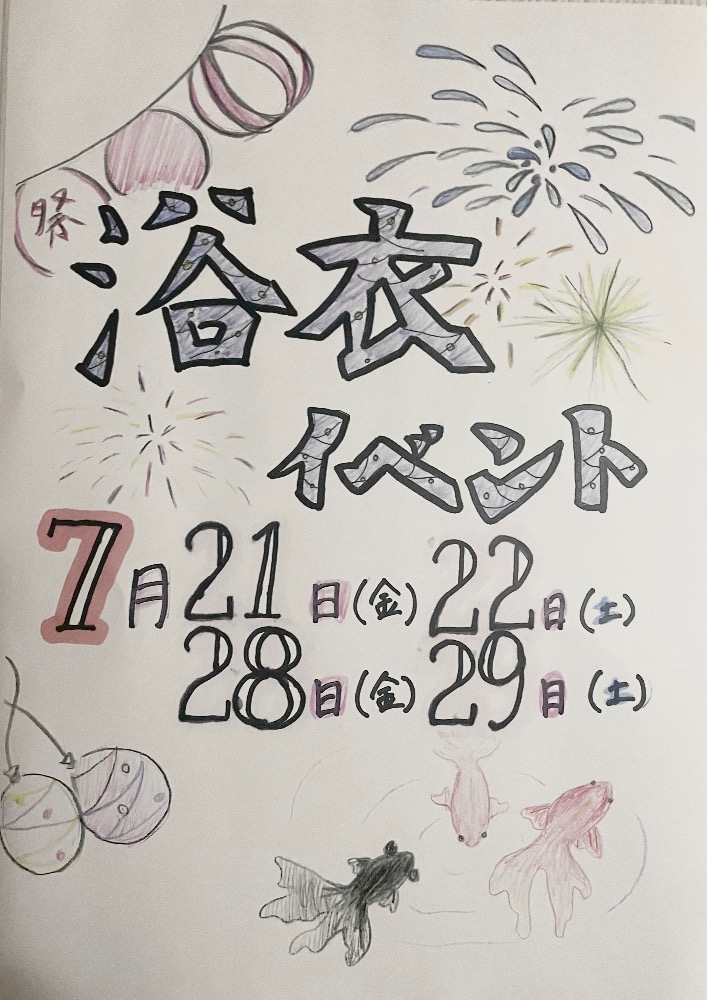 祭
浴衣
イベント
7月21日(金)22日(土)
28日(金)29日(土)